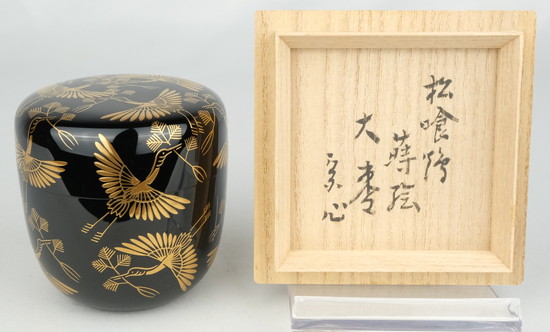 松喰鶴
蒔絵
大棗
宗心